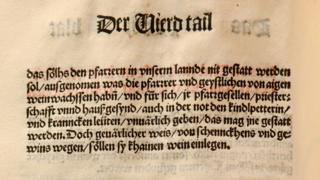 Der Vierd tail
das sölhs den pfarrern in vnserm lannde nit gestatt werden
sol/ ausgenomen was die pfarrer vnd geystlichen von aigen
weinwachssen habñ/ vnd für sich/ jr pfarrgesellen/ priester-
schafft vnnd haußgesynd/ auch in der not den kindlpetterin/
vnd kranncken leüten/ vnuärlich geben/ das mag jne gestatt
werden. Doch geuärlicher weis/ von schennckhens vnd ge-
wins wegen/ söllen sy khainen wein einlegen.